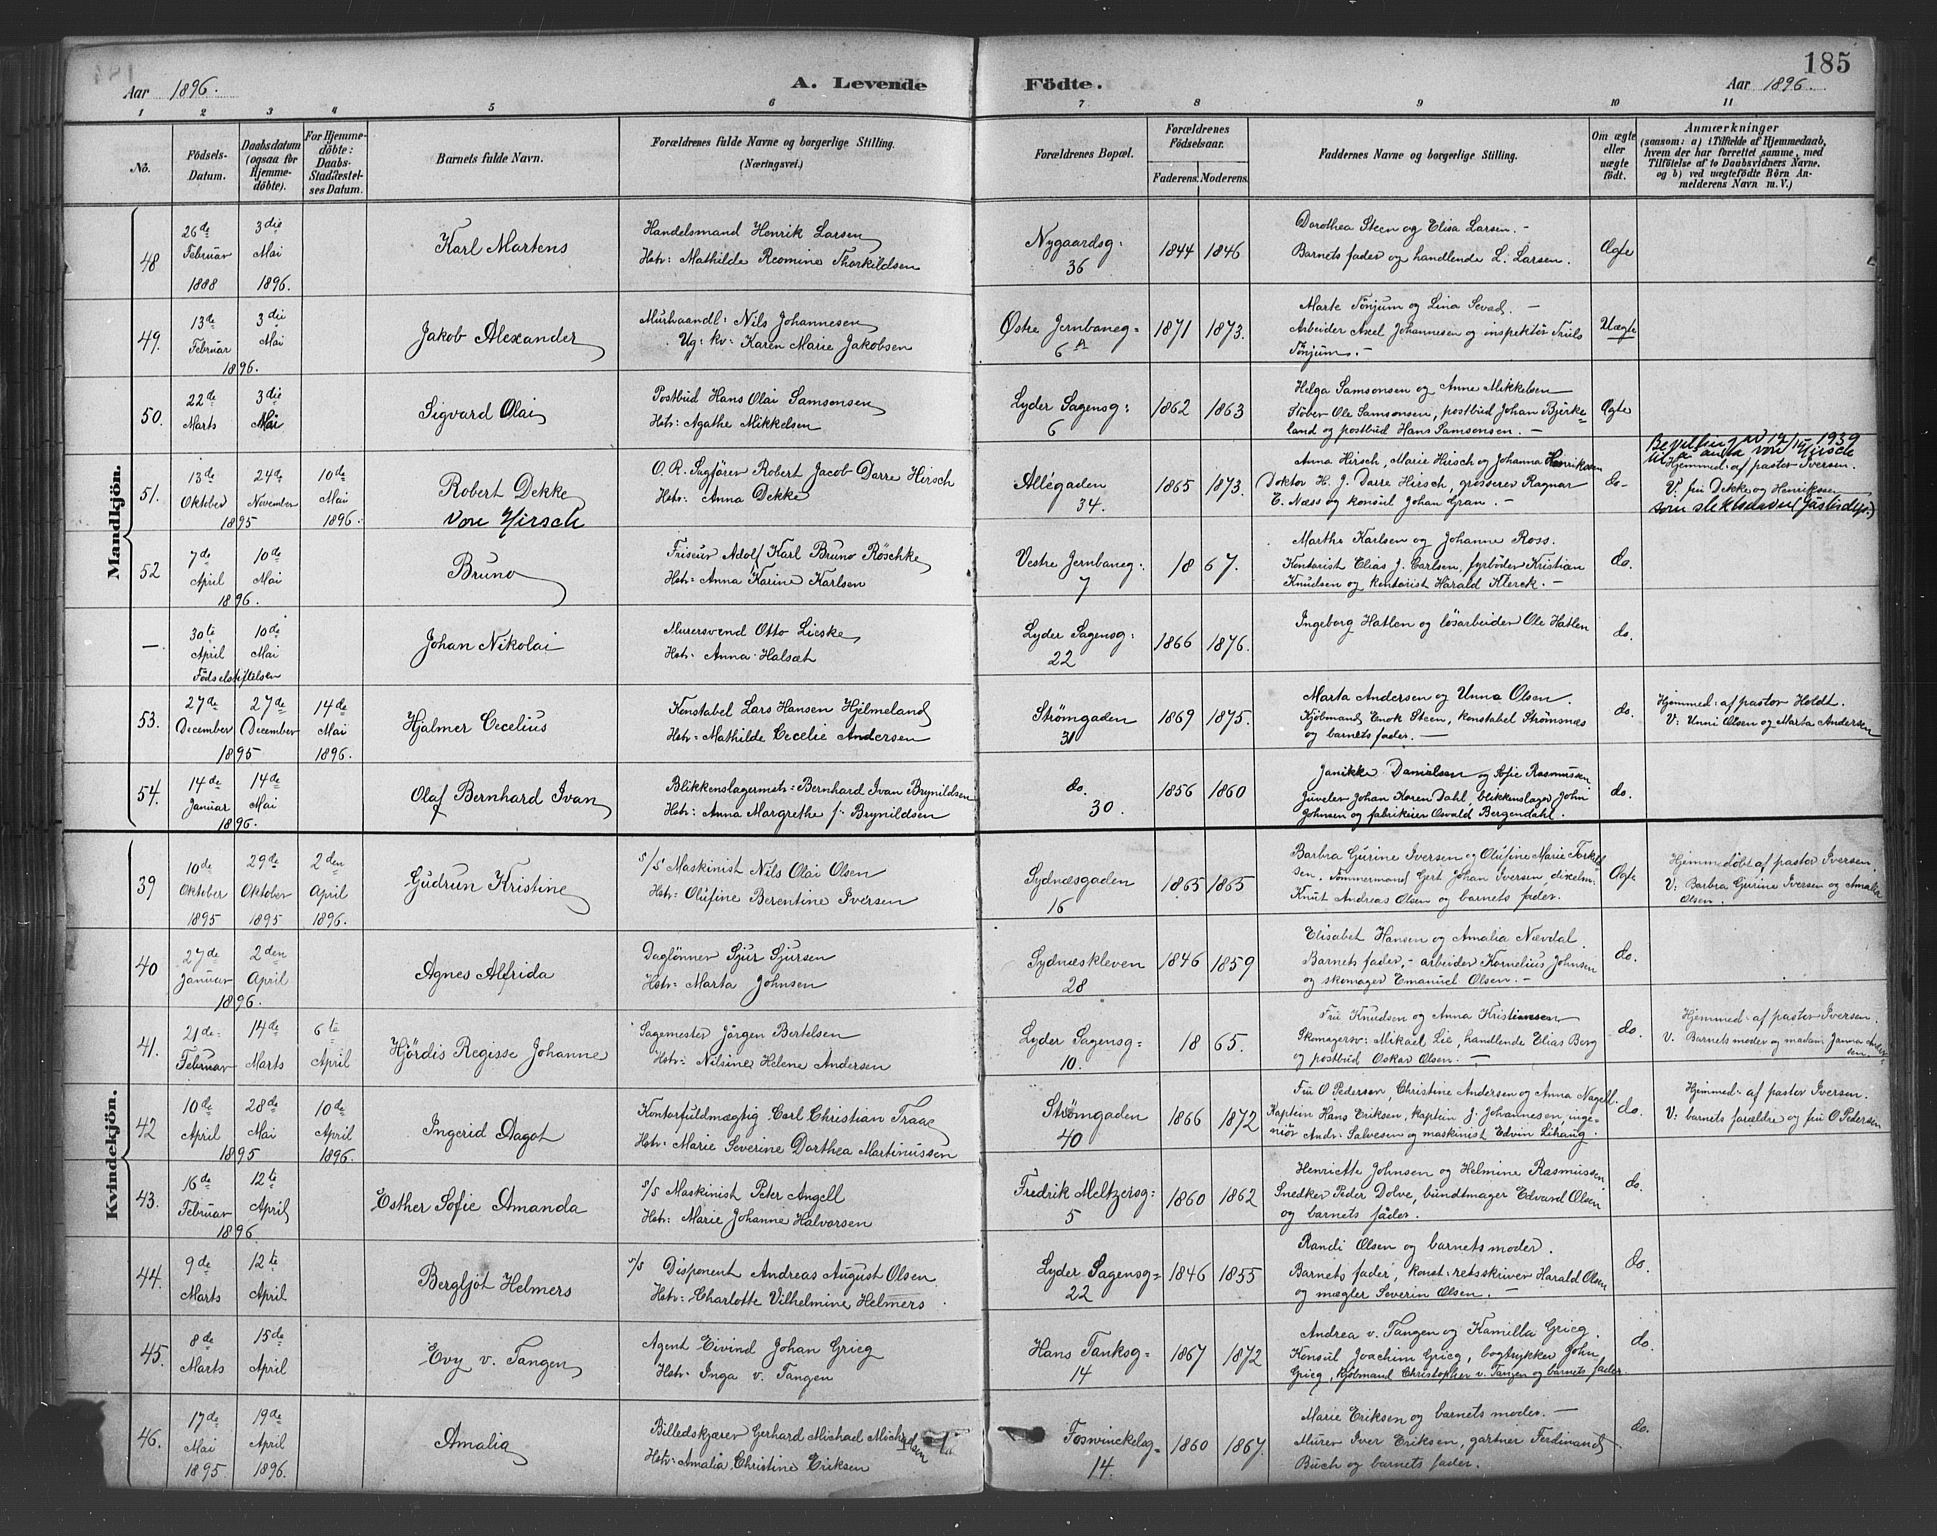 185
Aar 1896. A. Levende Födte. Aar 1896.
1 2 3 4 5 6 7 8 9 10 11
No. Födsels-Datum. Daabsdatum (ogsaa for Hjemme-döbte). For Hjemme-döbte: Daabs-Stadfæstel-ses Datum. Barnets fulde Navn. Forældrenes fulde Navne og borgerlige Stilling. (Næringsvei.) Forældrenes Bopæl. Forældrenes Födselsaar. Faderens. Moderens. Faddernes Navne og borgerlige Stilling. Om ægte eller uægte födt. Anmærkninger (saasom: a) i Tilfælde af Hjemmedaab, hvem der har forrettet samme, med Tilföielse af to Daabsvidners Navne. og b) ved uægtefödte Börn An-melderens Navn m. V.)
Mandkjön.
48 26de Februar 1888 3die Mai 1896. Karl Martens
Handelsmand Henrik Larsen
Hstr: Mathilde Reomine Thorkildsen
Nygaardsg: 36 1844 1846
Dorothea Steen og Elisa Larsen. –
Barnets fader og handlende L. Larsen.
Ægte
49. 13de Februar 3die Mai 1896. Jakob Alexander
Murhaandl: Nils Johannesen
Ug: kv: Karen Marie Jakobsen
Østre Jernbaneg= 6A 1871 1873.
Marte Tönjum og Lina Sevad. –
Arbeider Axel Johannesen og inspektör Truls
Tönjum. –
Uægte
50. 22de Marts 3die Mai Sigvard Olai
Postbud Hans Olai Samsonsen
Hstr: Agathe Mikkelsen
Lyder Sagensg: 6 1862 1863
Helga Samsonsen og Anne Mikkelsen
Stöber Ole Samsonsen, postbud Johan Bjerke=
land og postbud Hans Samsonsen. –
Ægte
51. 13de Oktober 24de November 1895 10de Mai 1896. Robert Dekke
von Hirsch
O. R. Sagfören Robert Jacob Darre Hirsch
Hstr: Anna Dekke
Allégaden 34. 1865 1873.
Anna Hirsch, Marie Hirsch og Johanna Henriksen
Doktor H. J. Darre Hirsch, grosserer Ragnar
E. Næss og konsul Johan Gran. –
do–
1939
von Hirsch
Hjemmed: af pastor Iversen.
V: fru Dekke og Henriksen
som slektsnavn (Justisdep.)
52 7de April 10de Mai 1896. Bruno
Friseur Adolf Karl Bruno Röschke
Hstr: Anna Karine Karlsen
Vestre Jernbaneg: 7 1867.
Marthe Karlsen og Johanne Ross.
Kontorist Elias J. Carlsen, fyrböder Kristian
Knudsen og kontorist Harald Klerck. –
do.
— 30te April 10de Mai Födselstiftelsen Johan Nikolai
Murersvend Otto Lieske
Hstr: Anna Halsæt
Lyder Sagensg: 22 1866 1876.
Ingeborg Hatlen og lösarbeider Ole Hatlen
do.
53. 27de December 27de December 1895 14de Mai 1896. Hjalmer Cecelius
Konstabel Lars Hansen Hjelmeland
Hstr: Mathilde Cecelie Andersen
Strömgaden 31 1869 1875.
Marta Andersen og Unna Olsen.
Kjöbmand Enok Steen, konstabel Strömsnæs
og barnets fader. –
do.
Hjemmed: af pastor Holdt.
V: Unni Olsen og Marta Andersen
54. 14de Januar 14de Mai 1896. Olaf Bernhard Ivan
Blikkenslagermstr: Bernhard Ivan Brynildsen
Hstr: Anna Margrethe f. Brynildsen
do. 30. 1856 1860
Janikke Danielsen og Sofie Rasmussen
Juveler Johan Koren Dahl, blikkenslager John
Johnsen og fabrikeier Osvald Bergendahl.
do.
Kvindekjön.
39 10de Oktober 1895 29de Oktober 1895 2den April 1896. Gudrun Kristine
S/S Maskinist Nils Olai Olsen
Hstr: Olufine Berentine Iversen
Sydnæsgaden 16 1865 1865
Barbra Gurine Iversen og Olufine Marie Torkel
sen. Tömmermand Gert Johan Iversen, dixelm.
Knut Andreas Olsen og barnets fader.
Ægte
Hjemmedöbt af pastor Iversen.
V: Barbra Gurine Iversen og Amalia
Olsen.
40 27de Januar 2den April 1896. Agnes Alfrida
Daglönner Sjur Sjursen
Hstr: Marta Johnsen
Sydnæskleven 28 1846 1859
Elisabet Hansen og Amalia Nævdal.
Barnets fader, – arbeider Kornelius Johnsen
og skomager Emanuel Olsen. –
do.
41. 21de Februar 14de Marts 6te April Hjördis Regisse Johanne
Sagemester Jörgen Bertelsen
Hstr: Nilsine Helene Andersen
Lyder Sagensg= 10. 1865.
Fru Knudsen og Anna Kristiansen
Skomagersv: Mikael Lie, handlende Elias Berg
og postbud Oskar Olsen. –
do.
Hjemmed: af pastor Iversen.
V. Barnets moder og madam Janna Ander
sen
42 10de April 28de Mai 1895 10de April 1896. Ingerid Dagot
Kontorfuldmægtig Carl Christian Traae
Hstr: Marie Severine Dorthea Martinussen
Strömgaden 40 1866 1872
Fru O Pedersen, Christine Andersen og Anna Nagell.
Kaptein Hans Eriksen, kaptein J. Johannesen, inge=
niör Andr: Salvesen og maskinist Edvin Lihaug.
do.
Hjemmed: af pastor Iversen.
V: barnets forældre og fru O Pedersen
43. 16de Februar 12te April 1896. Esther Sofie Amanda
S/S Maskinist Peter Angell
Hstr: Marie Johanne Halvorsen
Fredrik Meltzersg: 5 1860 1862
Henriette Johnsen og Helmine Rasmussen
Snedker Peder Dolve, bundtmager Edvard Olsen
og barnets fader.
do.
44. 9de Marts 12te April Bergljot Helmers
S/S Disponent Andreas August Olsen
Hstr: Charlotte Vilhelmine Helmers.
Lyder Sagensg= 22 1846 1855
Randi Olsen og barnets moder.
Barnets fader, konst: retsskriver Harald Olsen
og mægler Severin Olsen. –
do.
45. 8de Marts 15de April Evy v. Tangen
Agent Eivind Johan Grieg
Hstr: Inga v. Tangen
Hans Tanksg= 14 1867 1872
Andrea v. Tangen og Kamilla Grieg.
Konsul Joachim Grieg, bogtrykker John
Grieg, kjöbmand Christopher v. Tangen og barnets fader.
do.
46. 17de Mai 1895 19de April 1896. Amalia
Billedskjærer Gerhard Michael Michelsen
Hstr: Amalia Christine Eriksen
Foswinckelsg= 14. 1860 1867.
Marie Eriksen og barnets moder. –
Murer Iver Eriksen, gartner Ferdinand
Buch og barnets fader.
do.